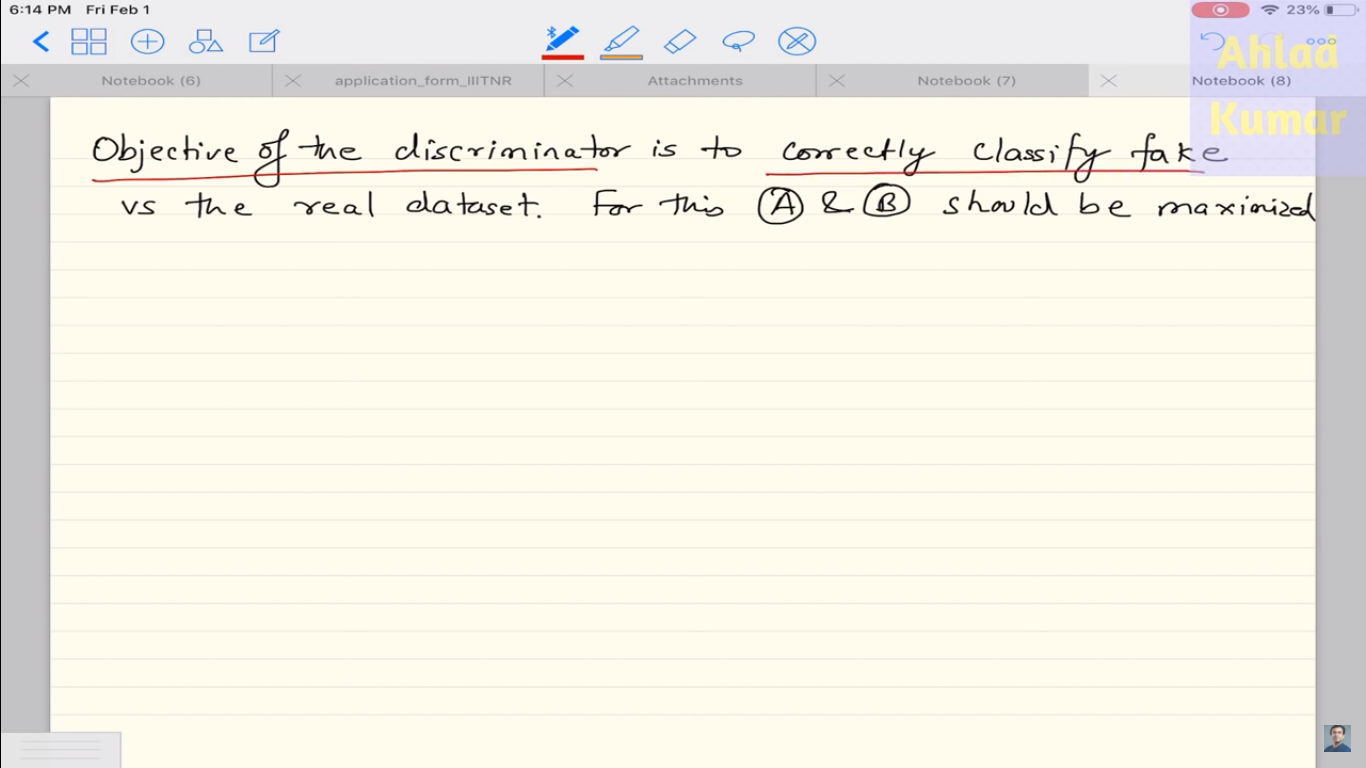 6:14 PM Fri Feb 1 23%
Notebook (6) application_form_IIITNR Attachments Notebook (7) Notebook (8)
Ahlad
Kumar
Objective of the discriminator is to correctly classify fake
vs the real dataset. For this (A) & (B) should be maximized